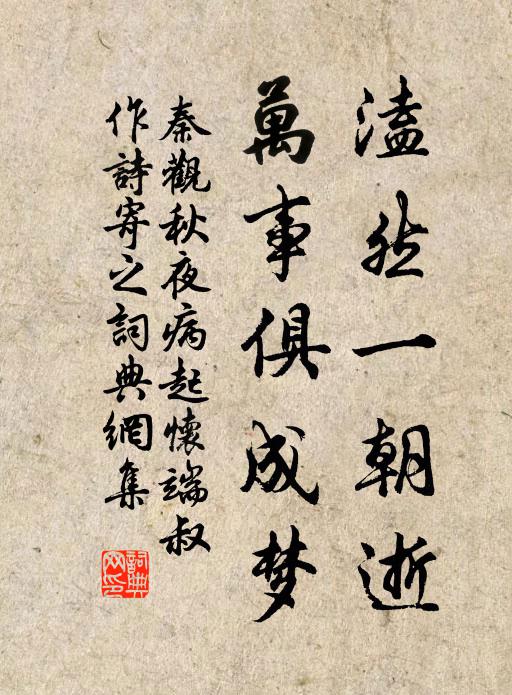 溘然一朝逝
萬事俱成梦
秦觀秋夜病起懷端叔
作詩寄之詞典網集
詞典
网印